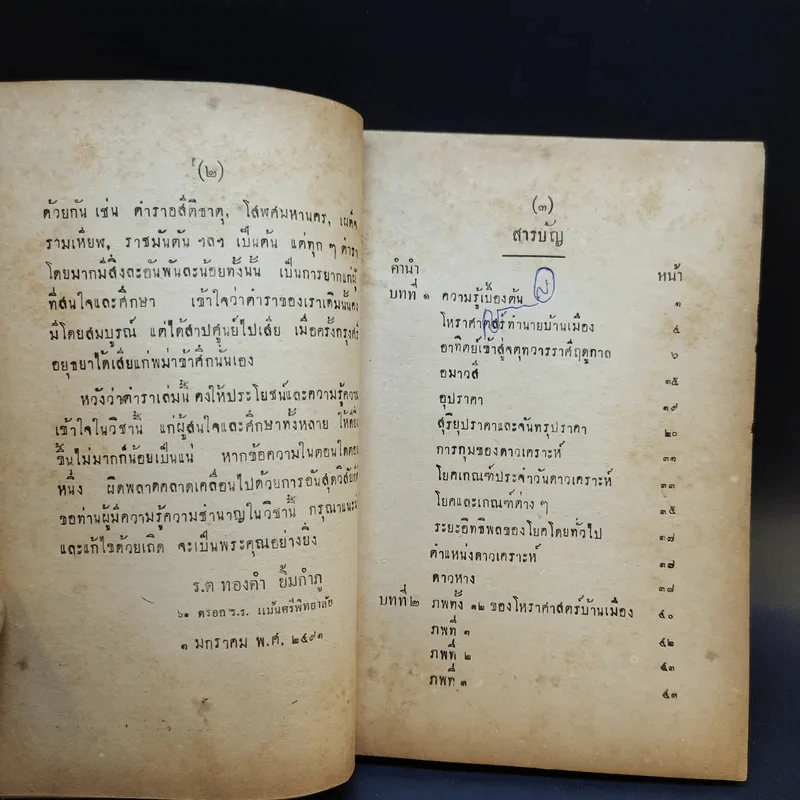 (๒)
ด้วยกัน เช่น ตำราอสีติธาตุ, โสฬศมหานคร,
รามเหียพ, ราชมันตัน ฯลฯ เป็นต้น แต่ทุก ๆ ตำรา
โดยมากมีสิ่งละอันพันละน้อยทั้งนั้น เป็นการยากแก่ผู้
ที่สนใจและศึกษา เข้าใจว่าตำราของเราเดิมนั้นคง
มีโดยสมบูรณ์ แต่ได้สาปศูนย์ไปเสีย เมื่อครั้งกรุงศรี
อยุธยาได้เสียแก่พม่าข้าศึกนั้นเอง
หวังว่าตำราเล่มนี้ คงให้ประโยชน์และความรู้ความ
เข้าใจในวิชานี้ แก่ผู้สนใจและศึกษาทั้งหลาย ให้ดียิ่ง
ขึ้นไม่มากก็น้อยเป็นแน่ หากข้อความในตอนใดตอน
หนึ่ง ผิดพลาดคลาดเคลื่อนไปด้วยการอันสุดวิสัยก็ดี
ขอท่านผู้มีความรู้ความชำนาญในวิชานี้ กรุณาแนะนำ
และแก้ไขด้วยเถิด จะเป็นพระคุณอย่างยิ่ง
ร.ต ทองคำ ยิ้มกำภู
๖๑ ตรอก ร.ร. แม้นศรีพิทยาลัย
๑ มกราคม พ.ศ. ๒๔๙๑
(๓)
สารบัญ
คำนำ หน้า
บทที่ ๑ ความรู้เบื้องต้น ๑
โหราศาตสร์ทำนายบ้านเมือง ๕
อาทิตย์เข้าสู่จตุทวารราศีฤดูกาล ๖
อมาวสี ๑๕
อุปราคา ๑๙
สุริยุปราคาและจันทรุปราคา ๒๐
การกุมของดาวเคราะห์ ๓๑
โยคเกณฑ์ประจำวันดาวเคราะห์ ๓๓
โยคและเกณฑ์ต่าง ๆ ๓๕
ระยะอิทธิพลของโยคโดยทั่วไป ๓๗
ตำแหน่งดาวเคราะห์ ๓๗
ดาวหาง ๓๘
บทที่ ๒ ภพทั้ง ๑๒ ของโหราศาสตร์บ้านเมือง ๔๐
ภพที่ ๑ ๔๒
ภพที่ ๒ ๔๓
ภพที่ ๓ ๔๓